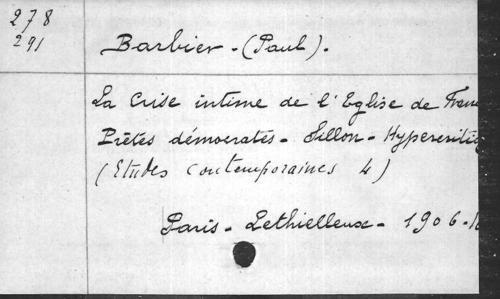 278
291
Barbier - (Paul).
La Crise intime de l'Eglise de Fran
Prêtes démocrates - Sillon - Hypercritiq
(Etudes contemporaines 4)
Paris - Lethielleux - 1906 -